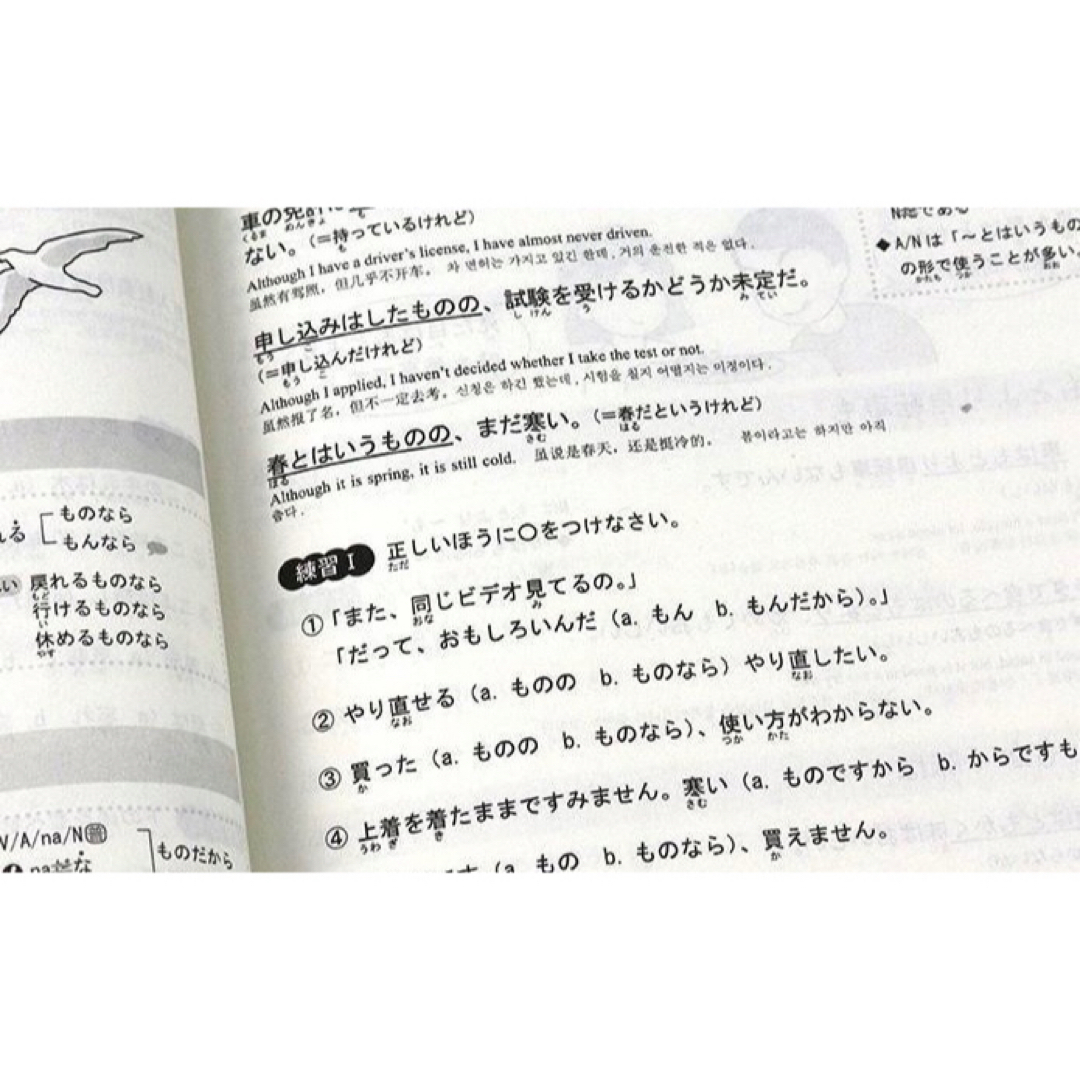 れる
ものなら
もんなら
戻れるものなら
行けるものなら
休めるものなら
V/A/na/N普
ものだから
車の免許
ない。(=持っているけれど)
Although I have a driver's license, I have almost never driven.
虽然有驾照,但几乎不开车。 차 면허는 가지고 있긴 한데, 거의 운전한 적은 없다.
申し込みはしたものの、試験を受けるかどうか未定だ。
(=申し込んだけれど)
Although I applied, I haven't decided whether I take the test or not.
虽然报了名,但不一定去考。 신청은 하긴 했는데, 시험을 칠지 어떨지는 미정이다.
春とはいうものの、まだ寒い。(=春だというけれど)
Although it is spring, it is still cold. 虽说是春天,还是挺冷的。 봄이라고는 하지만 아직
춥다.
練習Ⅰ 正しいほうに○をつけなさい。
①「また、同じビデオ見てるの。」
「だって、おもしろいんだ(a. もん b. もんだから)。」
② やり直せる(a. ものの b. ものなら)やり直したい。
③ 買った(a. ものの b. ものなら)、使い方がわからない。
④ 上着を着たままですみません。寒い(a. ものですから b. からですも
(a. もの b. ものなら)、買えません。
◆A/Nは「~とはいうもの
の形で使うことが多い。